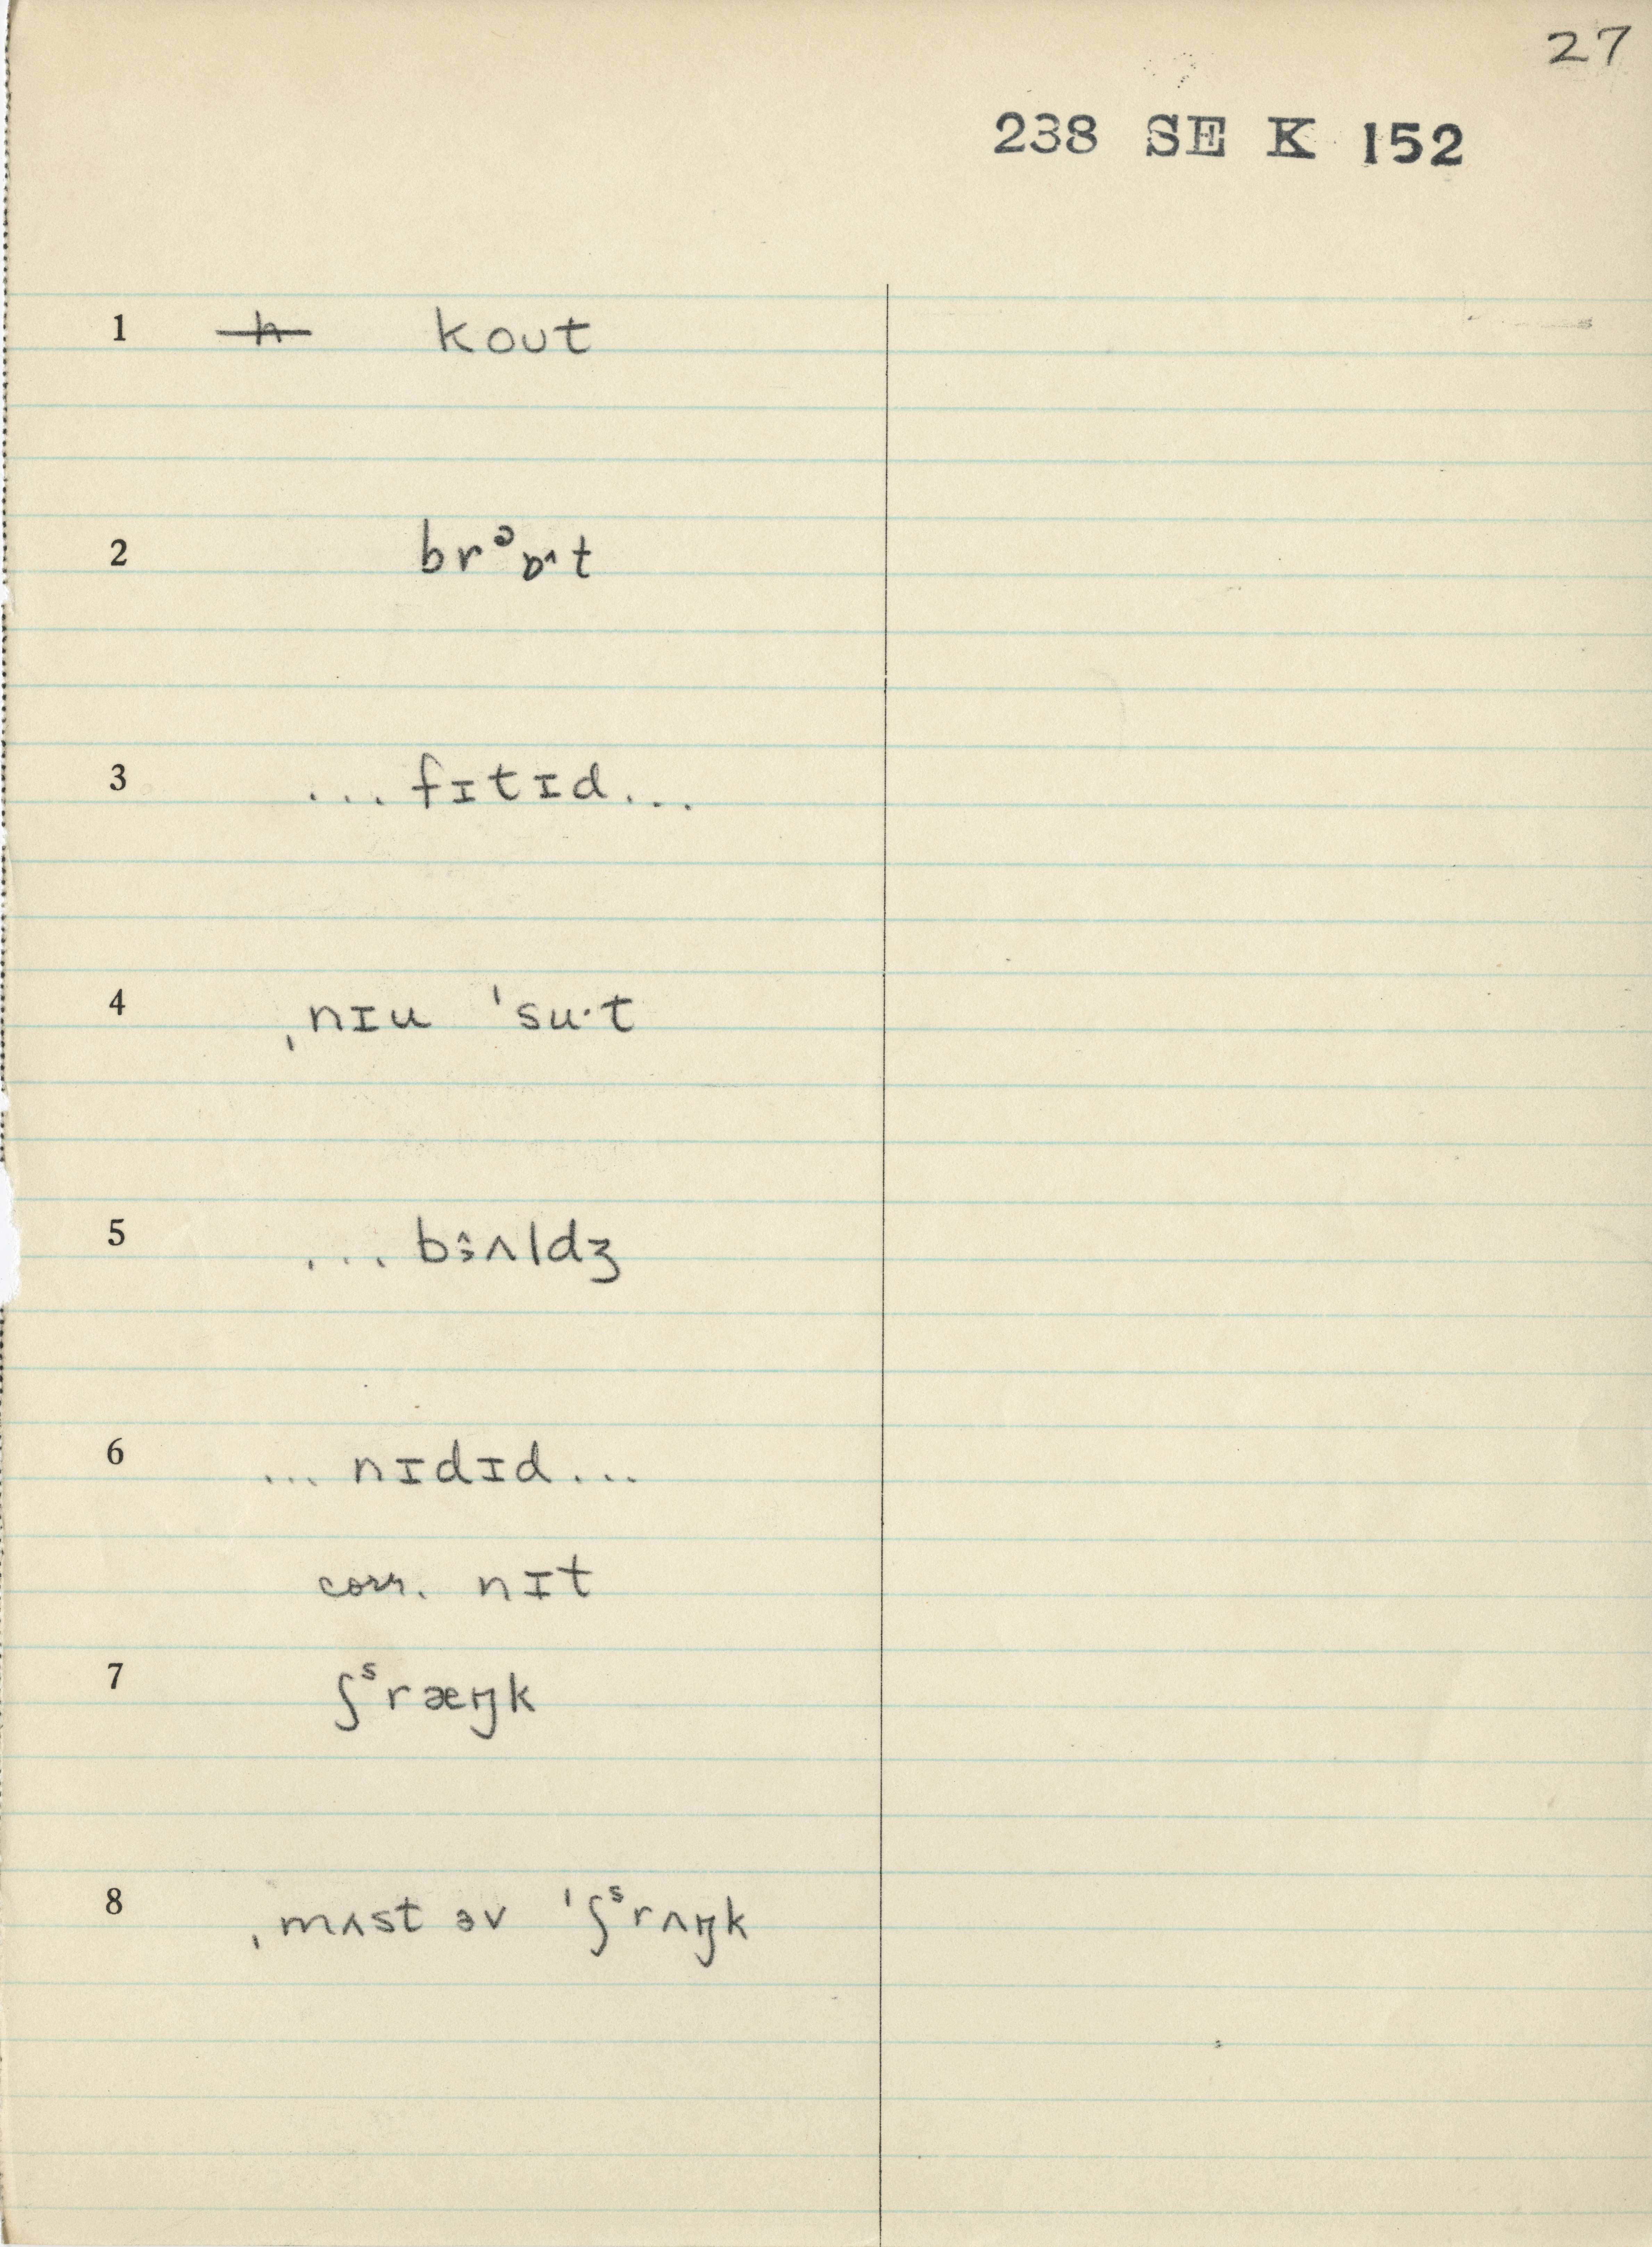 27
238 SE K 152
1 h koʊt
2 brᵊɒ˄t
3 ...fɪtɪd...
4 ˌnɪu ˈsu·t
5 ... bɜ̂ʌldʒ
6 ... nɪdɪd...
corr. nɪt
7 ʃˢræŋk
8 ˌmʌst əv ˈʃˢrʌŋk